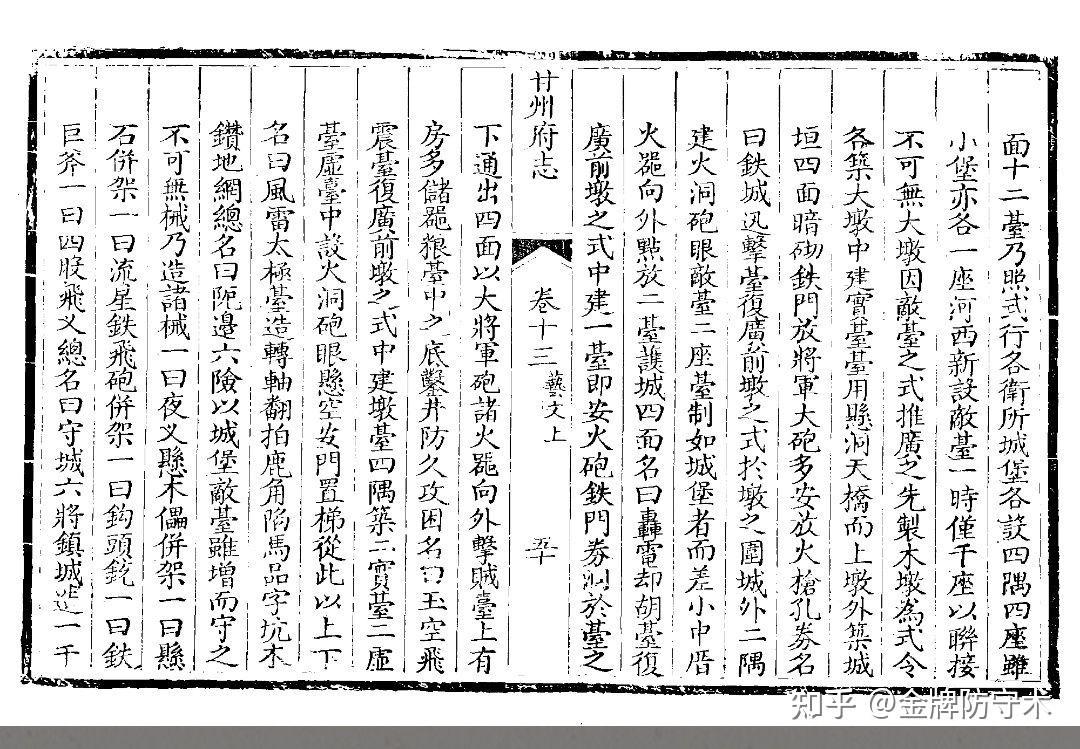 面十二臺乃照式行各衛所城堡各設四隅四座雖
小堡亦各一座河西新設敵臺一時僅千座以聯接
不可無大墩因敵臺之式推廣之先製木墩為式令
各築大墩中建實臺臺用懸洞天橋而上墩外築城
垣四面暗砌鉄門放將軍大砲多安放火槍孔券名
曰鉄城迅擊臺復廣前墩之式於墩之圍城外二隅
建火洞砲眼敵臺二座臺制如城堡者而差小中厝
火噐向外點放二臺護城四面名曰轟電却胡臺復
廣前墩之式中建一臺即安火砲鉄門券洞於臺之
甘州府志 卷十三 藝文上 五十
下通出四面以大將軍砲諸火噐向外擊賊臺上有
房多儲噐粮臺中之底鑿井防久攻困名曰玉空飛
震臺復廣前墩之式中建墩臺四隅築二實臺二虛
臺虛臺中設火洞砲眼懸空安門置梯從此以上下
名曰風雷太極臺造轉軸翻拍鹿角陷馬品字坑木
鑽地網總名曰阨邊六險以城堡敵臺雖增而守之
不可無械乃造諸械一曰夜叉懸木儡併架一曰懸
石併架一曰流星鉄飛砲併架一曰鈎頭鈗一曰鉄
巨斧一曰四股飛叉總名曰守城六將鎮城造一千
知乎 @金牌防守术